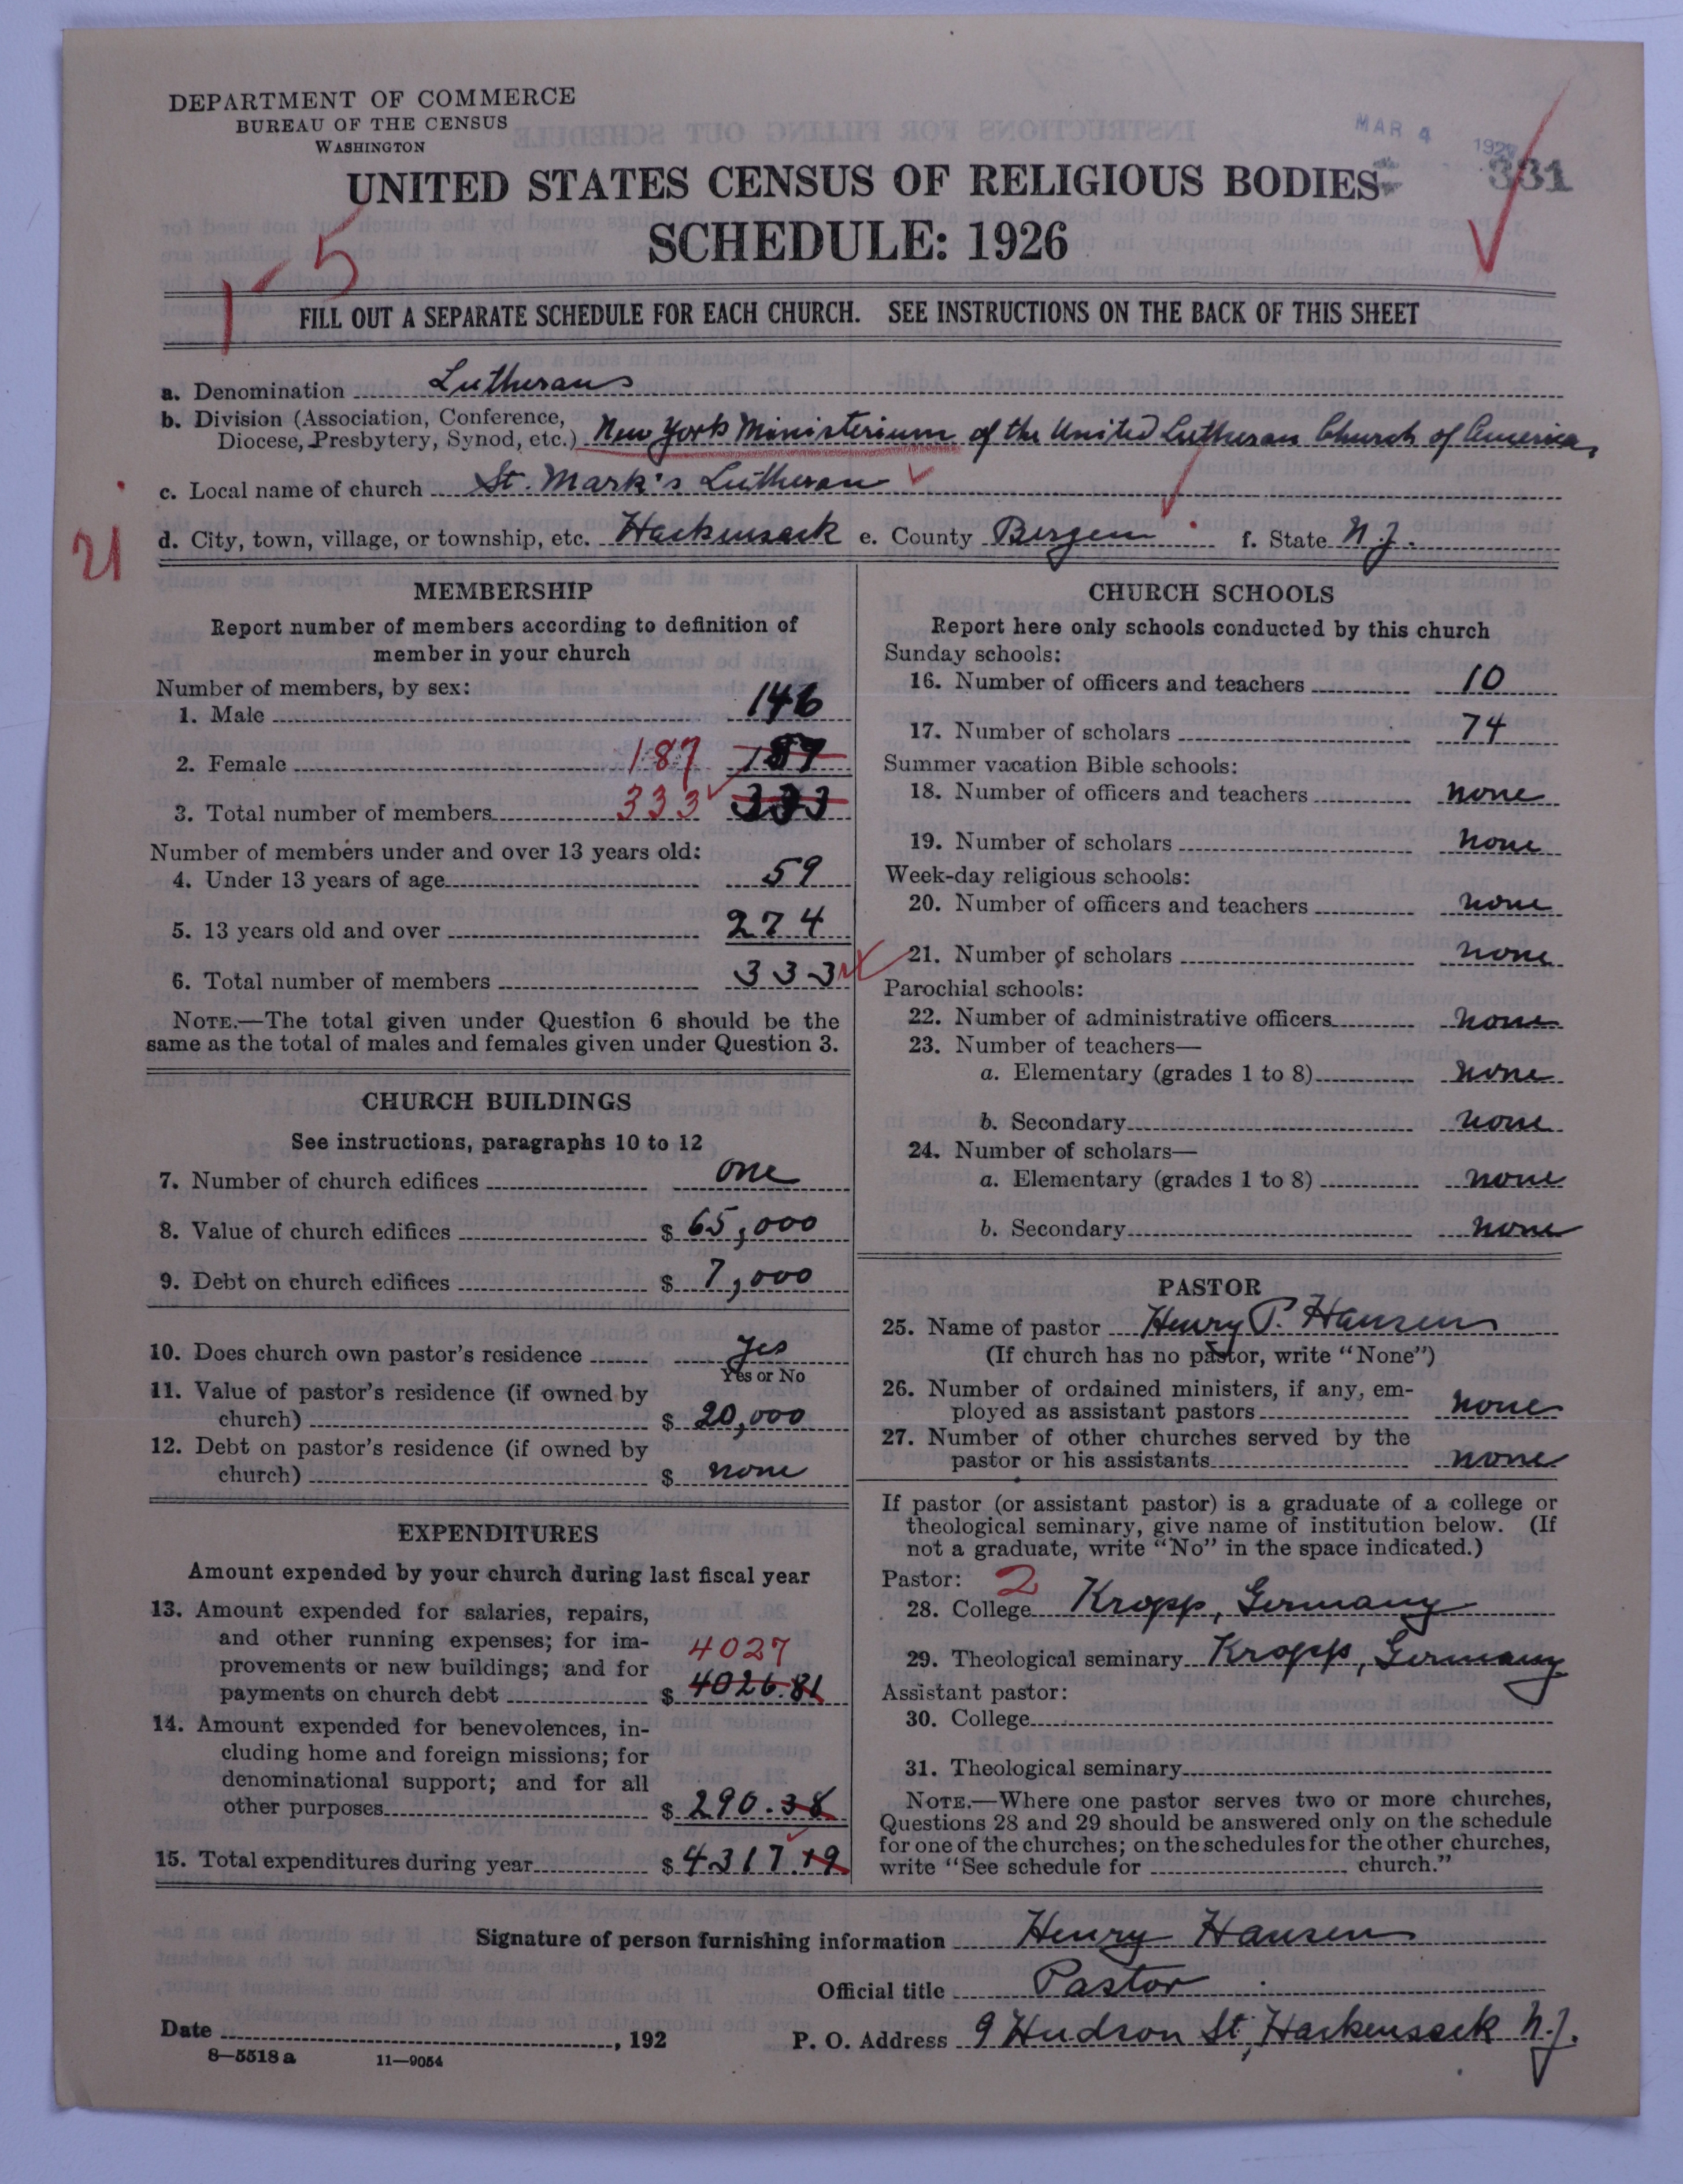 DEPARTMENT OF COMMERCE
BUREAU OF THE CENSUS
WASHINGTON
MAR 4 1927
331
UNITED STATES CENSUS OF RELIGIOUS BODIES
SCHEDULE: 1926
1-5
FILL OUT A SEPARATE SCHEDULE FOR EACH CHURCH. SEE INSTRUCTIONS ON THE BACK OF THIS SHEET
a. Denomination Lutherans
b. Division (Association, Conference,
Diocese, Presbytery, Synod, etc.) New York Ministerium of the United Lutheran Church of America,
c. Local name of church St. Mark's Lutheran
21
d. City, town, village, or township, etc. Hackensack e. County Bergen f. State N.J.
MEMBERSHIP
Report number of members according to definition of
member in your church
Number of members, by sex:
1. Male 146
2. Female 187 187
3. Total number of members 333 333
Number of members under and over 13 years old:
4. Under 13 years of age 59
5. 13 years old and over 274
6. Total number of members 333
NOTE.—The total given under Question 6 should be the
same as the total of males and females given under Question 3.
CHURCH BUILDINGS
See instructions, paragraphs 10 to 12
7. Number of church edifices one
8. Value of church edifices $ 65,000
9. Debt on church edifices $ 7,000
10. Does church own pastor's residence Yes
Yes or No
11. Value of pastor's residence (if owned by
church) $ 20,000
12. Debt on pastor's residence (if owned by
church) $ none
EXPENDITURES
Amount expended by your church during last fiscal year
13. Amount expended for salaries, repairs,
and other running expenses; for im-
4027
provements or new buildings; and for
payments on church debt $ 4026.81
14. Amount expended for benevolences, in-
cluding home and foreign missions; for
denominational support; and for all
other purposes $ 290.38
15. Total expenditures during year $ 4317.19
CHURCH SCHOOLS
Report here only schools conducted by this church
Sunday schools:
16. Number of officers and teachers 10
17. Number of scholars 74
Summer vacation Bible schools:
18. Number of officers and teachers none
19. Number of scholars none
Week-day religious schools:
20. Number of officers and teachers none
21. Number of scholars none
Parochial schools:
22. Number of administrative officers none
23. Number of teachers—
a. Elementary (grades 1 to 8) none
b. Secondary none
24. Number of scholars—
a. Elementary (grades 1 to 8) none
b. Secondary none
PASTOR
25. Name of pastor Henry P. Hansen
(If church has no pastor, write "None")
26. Number of ordained ministers, if any, em-
ployed as assistant pastors none
27. Number of other churches served by the
pastor or his assistants none
If pastor (or assistant pastor) is a graduate of a college or
theological seminary, give name of institution below. (If
not a graduate, write "No" in the space indicated.)
Pastor: 2
28. College Kropp, Germany
29. Theological seminary Kropp, Germany
Assistant pastor:
30. College
31. Theological seminary
NOTE.—Where one pastor serves two or more churches,
Questions 28 and 29 should be answered only on the schedule
for one of the churches; on the schedules for the other churches,
write "See schedule for church."
Signature of person furnishing information Henry Hansen
Official title Pastor
Date , 192
P. O. Address 9 Hudson St, Hackensack N.J.
8—5518 a 11—9054